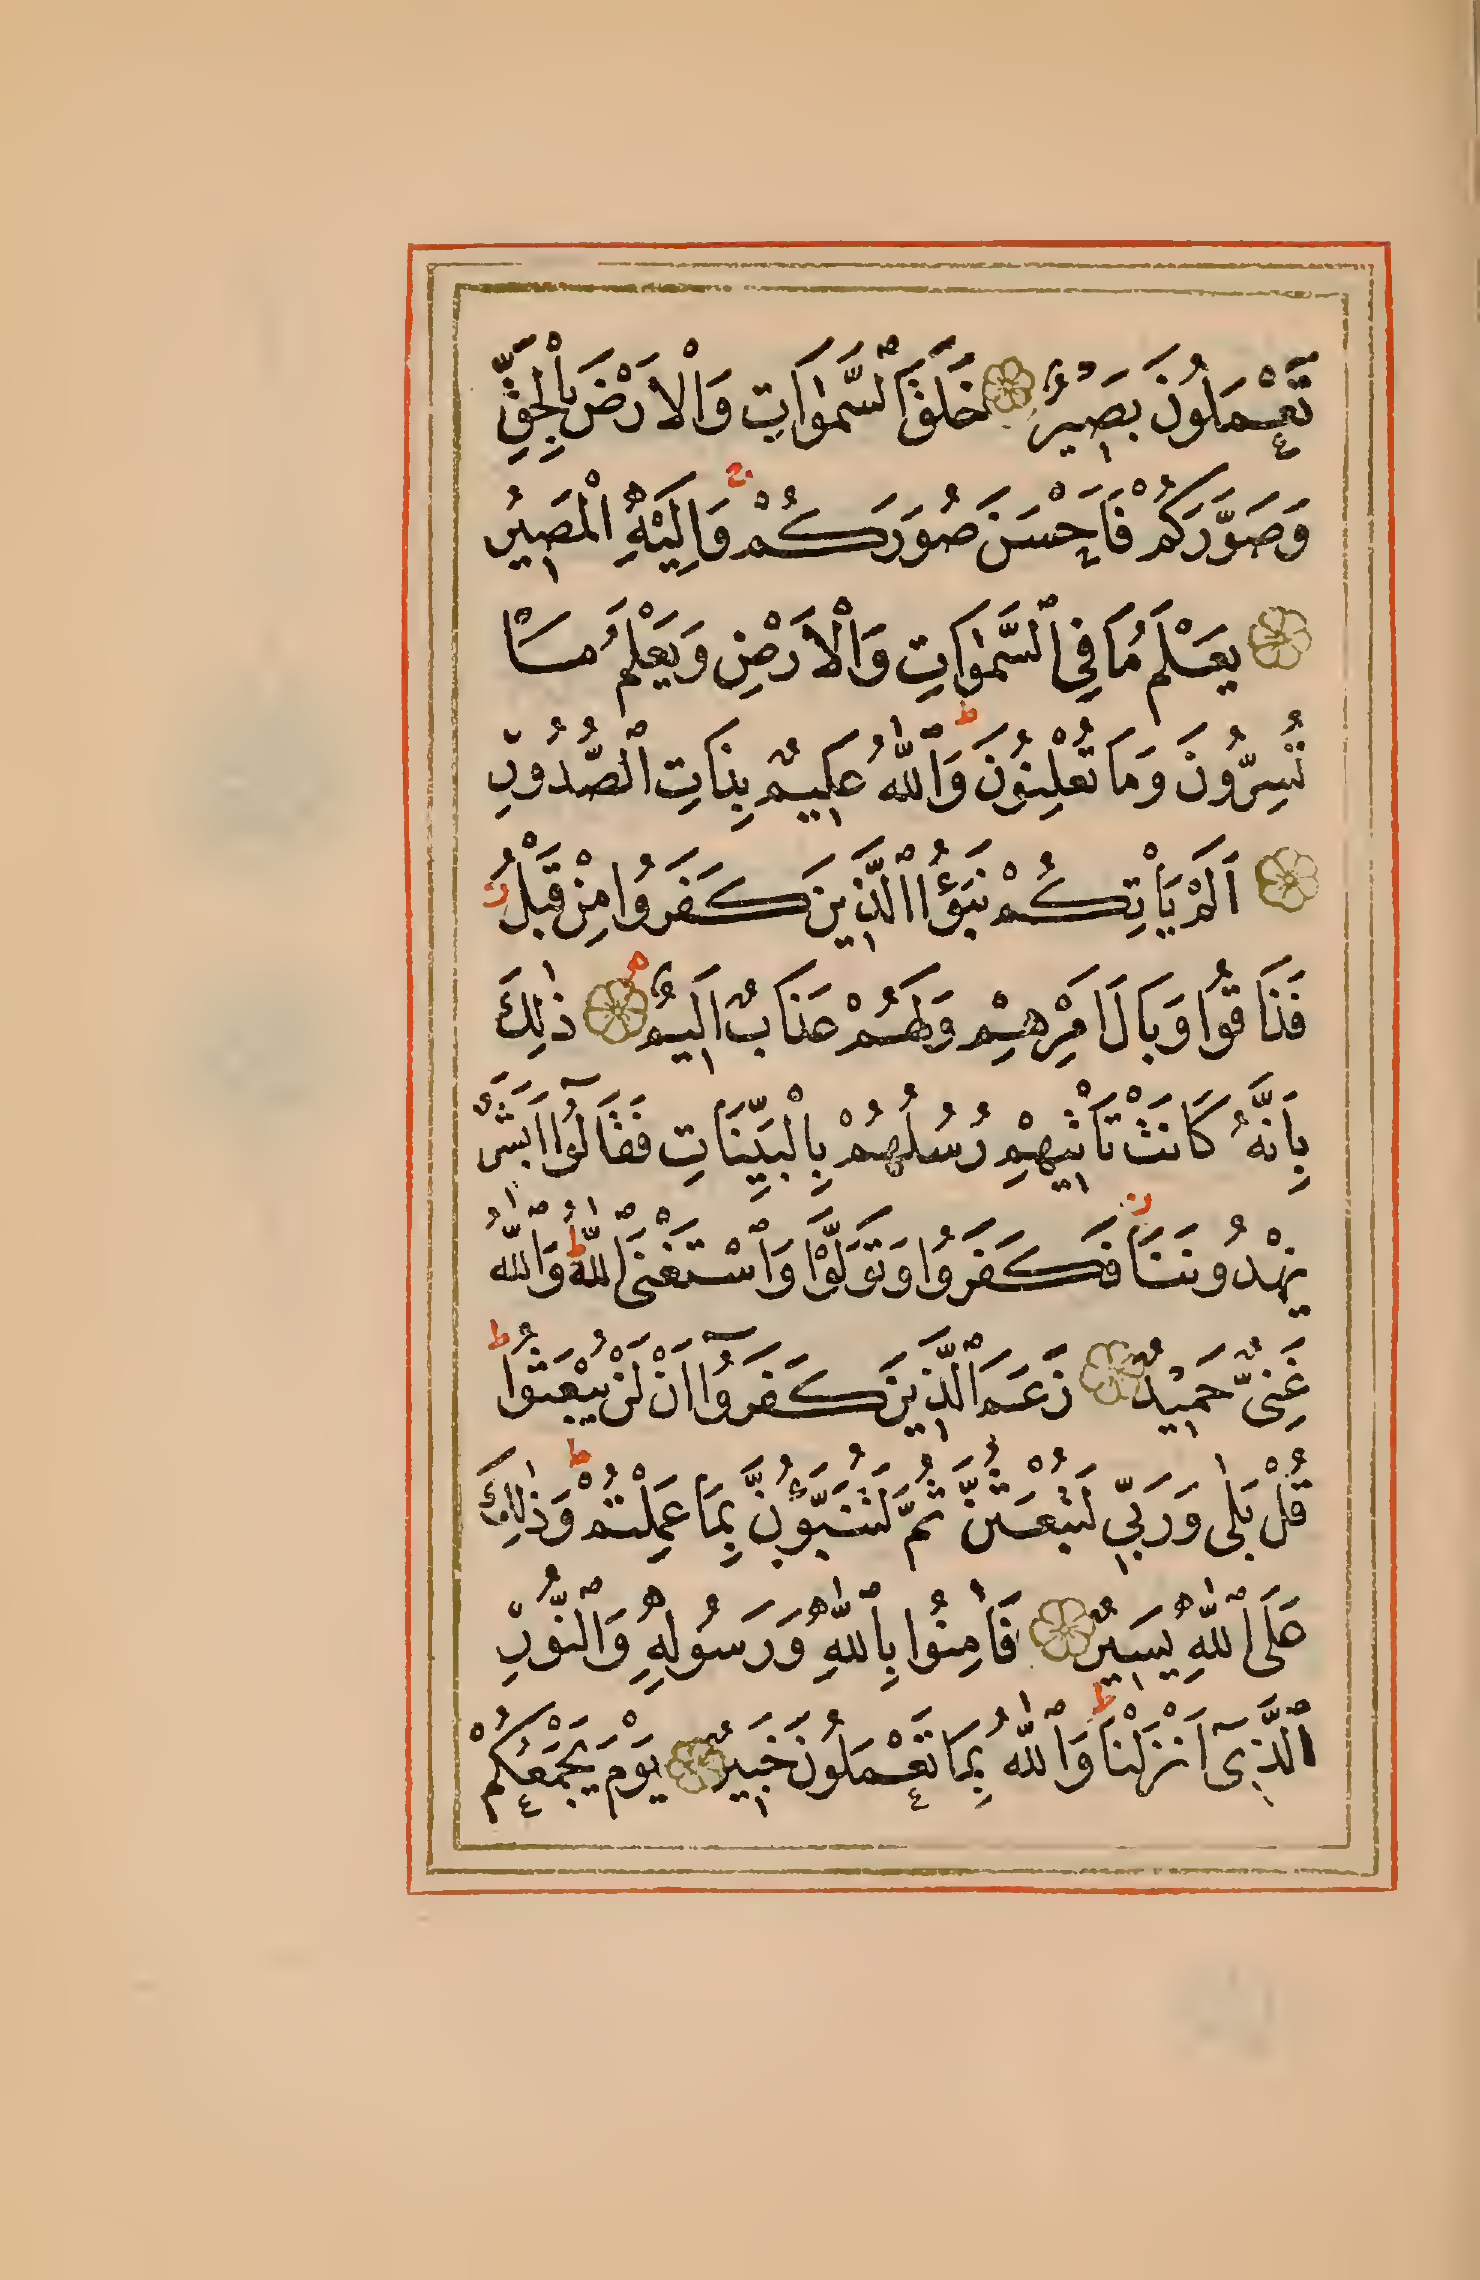 تَعْمَلُونَ بَصِيرٌ ۝ خَلَقَ ٱلسَّمٰوَاتِ وَالْاَرْضَ بِالْحَقِّ
وَصَوَّرَكُمْ فَاَحْسَنَ صُوَرَكُمْ ۚ وَاِلَيْهِ الْمَصِيرُ
۝ يَعْلَمُ مَا فِى ٱلسَّمٰوَاتِ وَالْاَرْضِ وَيَعْلَمُ مَا
تُسِرُّونَ وَمَا تُعْلِنُونَ ؕ وَٱللّٰهُ عَلِيمٌ بِذَاتِ ٱلصُّدُورِ
۝ اَلَمْ يَأْتِكُمْ نَبَؤُا ٱلَّذِينَ كَفَرُوا مِنْ قَبْلُ ز
فَذَاقُوا وَبَالَ اَمْرِهِمْ وَلَهُمْ عَذَابٌ اَلِيمٌ ۝ ذٰلِكَ
بِاَنَّهُ كَانَتْ تَأْتِيهِمْ رُسُلُهُمْ بِالْبَيِّنَاتِ فَقَالُوٓا اَبَشَرٌ
يَهْدُونَنَا ز فَكَفَرُوا وَتَوَلَّوْا وَٱسْتَغْنَى ٱللّٰهُ ؕ وَٱللّٰهُ
غَنِىٌّ حَمِيدٌ ۝ زَعَمَ ٱلَّذِينَ كَفَرُوٓا اَنْ لَنْ يُبْعَثُوا ؕ
قُلْ بَلٰى وَرَبِّى لَتُبْعَثُنَّ ثُمَّ لَتُنَبَّؤُنَّ بِمَا عَمِلْتُمْ ؕ وَذٰلِكَ
عَلَى ٱللّٰهِ يَسِيرٌ ۝ فَاٰمِنُوا بِٱللّٰهِ وَرَسُولِهِ وَٱلنُّورِ
ٱلَّذِىٓ اَنْزَلْنَا ؕ وَٱللّٰهُ بِمَا تَعْمَلُونَ خَبِيرٌ ۝ يَوْمَ يَجْمَعُكُمْ